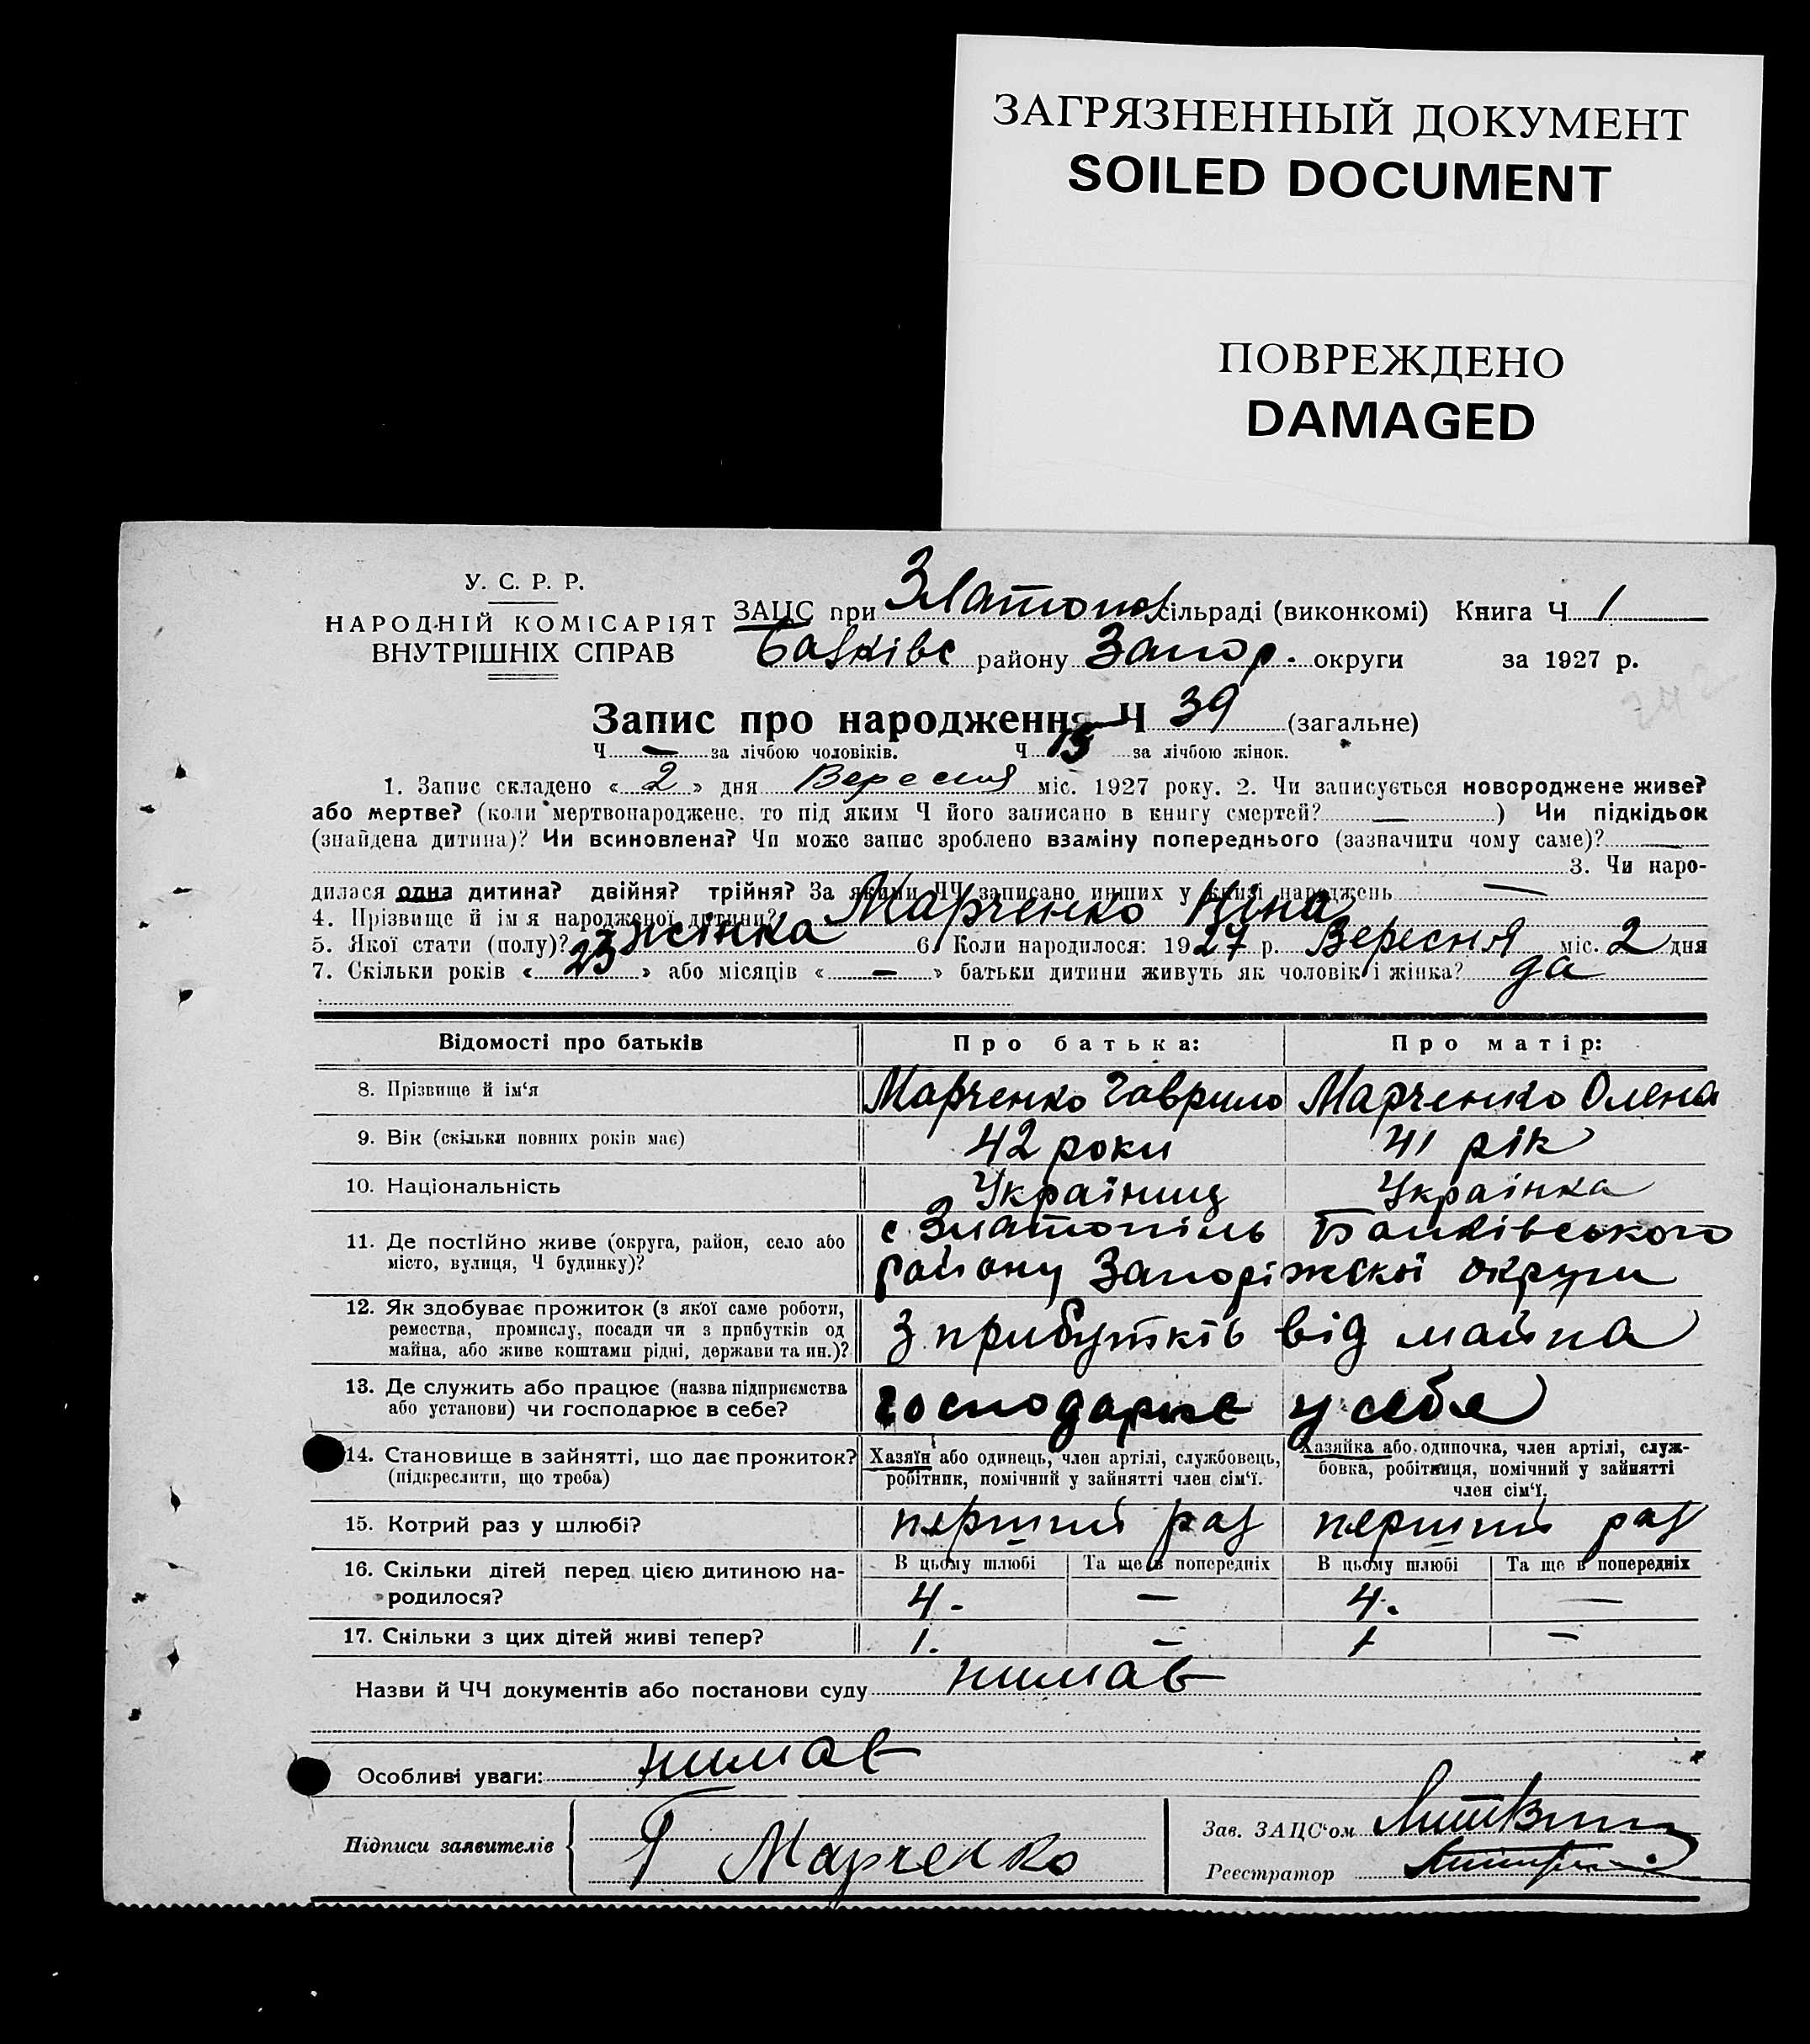 ЗАГРЯЗНЕННЫЙ ДОКУМЕНТ
SOILED DOCUMENT
ПОВРЕЖДЕНО
DAMAGED
У. С. Р. Р.
НАРОДНІЙ КОМІСАРІЯТ
ВНУТРІШНІХ СПРАВ
ЗАЦС при Златопол сільраді (виконкомі) Книга Ч 1
району Запор. округи за 1927 р.
Запис про народження Ч 39 (загальне)
Ч — за лічбою чоловіків. Ч 15 за лічбою жінок.
1. Запис складено « 2 » дня Вересня міс. 1927 року. 2. Чи записується новороджене живе?
або мертве? (коли мертвонароджене, то під яким Ч його записано в книгу смертей? — ) Чи підкідьок
(знайдена дитина)? Чи всиновлена? Чи може запис зроблено взаміну попереднього (зазначити чому саме)? —
3. Чи наро-
дилася одна дитина? двійня? трійня? За якими ЧЧ записано инших у книзі народжень —
4. Прізвище й ім'я народженої дитини? Марченко Ніна
5. Якої стати (полу)? жінка 6. Коли народилося: 1927 р. Вересня міс. 2 дня
7. Скільки років « 23 » або місяців « — » батьки дитини живуть як чоловік і жінка? да
Відомості про батьків Про батька: Про матір:
8. Прізвище й ім'я Марченко Гаврило Марченко Олена
9. Вік (скільки повних років має) 42 роки 41 рік
10. Національність Українец Українка
11. Де постійно живе (округа, район, село або
місто, вулиця, Ч будинку)?
с Златопіль Балківського
району Запоріжскої округи
12. Як здобуває прожиток (з якої саме роботи,
ремества, промислу, посади чи з прибутків од
майна, або живе коштами рідні, держави та ин.)?
З прибутків від майна
13. Де служить або працює (назва підприємства
або установи) чи господарює в себе?
господарює у себе
14. Становище в зайнятті, що дає прожиток?
(підкреслити, що треба)
Хазяїн або одинець, член артілі, службовець,
робітник, помічний у зайнятті член сім'ї.
Хазяйка або одиночка, член артілі, служ-
бовка, робітниця, помічний у зайнятті
член сім'ї.
15. Котрий раз у шлюбі? перший раз перший раз
16. Скільки дітей перед цією дитиною на-
родилося?
В цьому шлюбі Та ще в попередніх В цьому шлюбі Та ще в попередніх
4. — 4. —
17. Скільки з цих дітей живі тепер? 1. — 1 —
Назви й ЧЧ документів або постанови суду нимав
Особливі уваги: нимав
Підписи заявителів Г Марченко
Зав. ЗАЦС'ом Литвин
Реєстратор